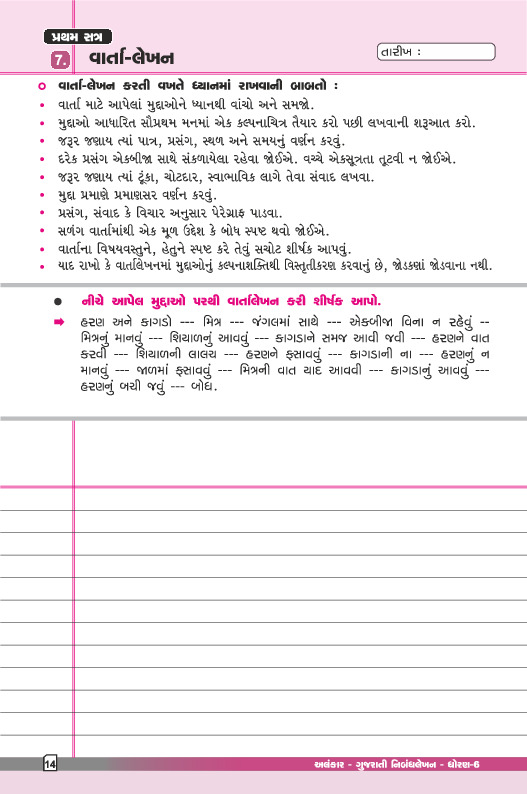 પ્રથમ સત્ર
7. વાર્તા-લેખન
તારીખ :
વાર્તા-લેખન કરતી વખતે ધ્યાનમાં રાખવાની બાબતો :
• વાર્તા માટે આપેલાં મુદ્દાઓને ધ્યાનથી વાંચો અને સમજો.
• મુદ્દાઓ આધારિત સૌપ્રથમ મનમાં એક કલ્પનાચિત્ર તૈયાર કરો પછી લખવાની શરૂઆત કરો.
• જરૂર જણાય ત્યાં પાત્ર, પ્રસંગ, સ્થળ અને સમયનું વર્ણન કરવું.
• દરેક પ્રસંગ એકબીજા સાથે સંકળાયેલા રહેવા જોઈએ. વચ્ચે એકસૂત્રતા તૂટવી ન જોઈએ.
• જરૂર જણાય ત્યાં ટૂંકા, ચોટદાર, સ્વાભાવિક લાગે તેવા સંવાદ લખવા.
• મુદ્દા પ્રમાણે પ્રમાણસર વર્ણન કરવું.
• પ્રસંગ, સંવાદ કે વિચાર અનુસાર પેરેગ્રાફ પાડવા.
• સળંગ વાર્તામાંથી એક મૂળ ઉદ્દેશ કે બોધ સ્પષ્ટ થવો જોઈએ.
• વાર્તાના વિષયવસ્તુને, હેતુને સ્પષ્ટ કરે તેવું સચોટ શીર્ષક આપવું.
• યાદ રાખો કે વાર્તાલેખનમાં મુદ્દાઓનું કલ્પનાશક્તિથી વિસ્તૃતીકરણ કરવાનું છે, જોડકણાં જોડવાના નથી.
● નીચે આપેલ મુદ્દાઓ પરથી વાર્તાલેખન કરી શીર્ષક આપો.
➡ હરણ અને કાગડો --- મિત્ર --- જંગલમાં સાથે --- એકબીજા વિના ન રહેવું --
મિત્રનું માનવું --- શિયાળનું આવવું --- કાગડાને સમજ આવી જવી --- હરણને વાત
કરવી --- શિયાળની લાલચ --- હરણને ફસાવવું --- કાગડાની ના --- હરણનું ન
માનવું --- જાળમાં ફસાવવું --- મિત્રની વાત યાદ આવવી --- કાગડાનું આવવું ---
હરણનું બચી જવું --- બોધ.
14
અલંકાર - ગુજરાતી નિબંધલેખન - ધોરણ-6